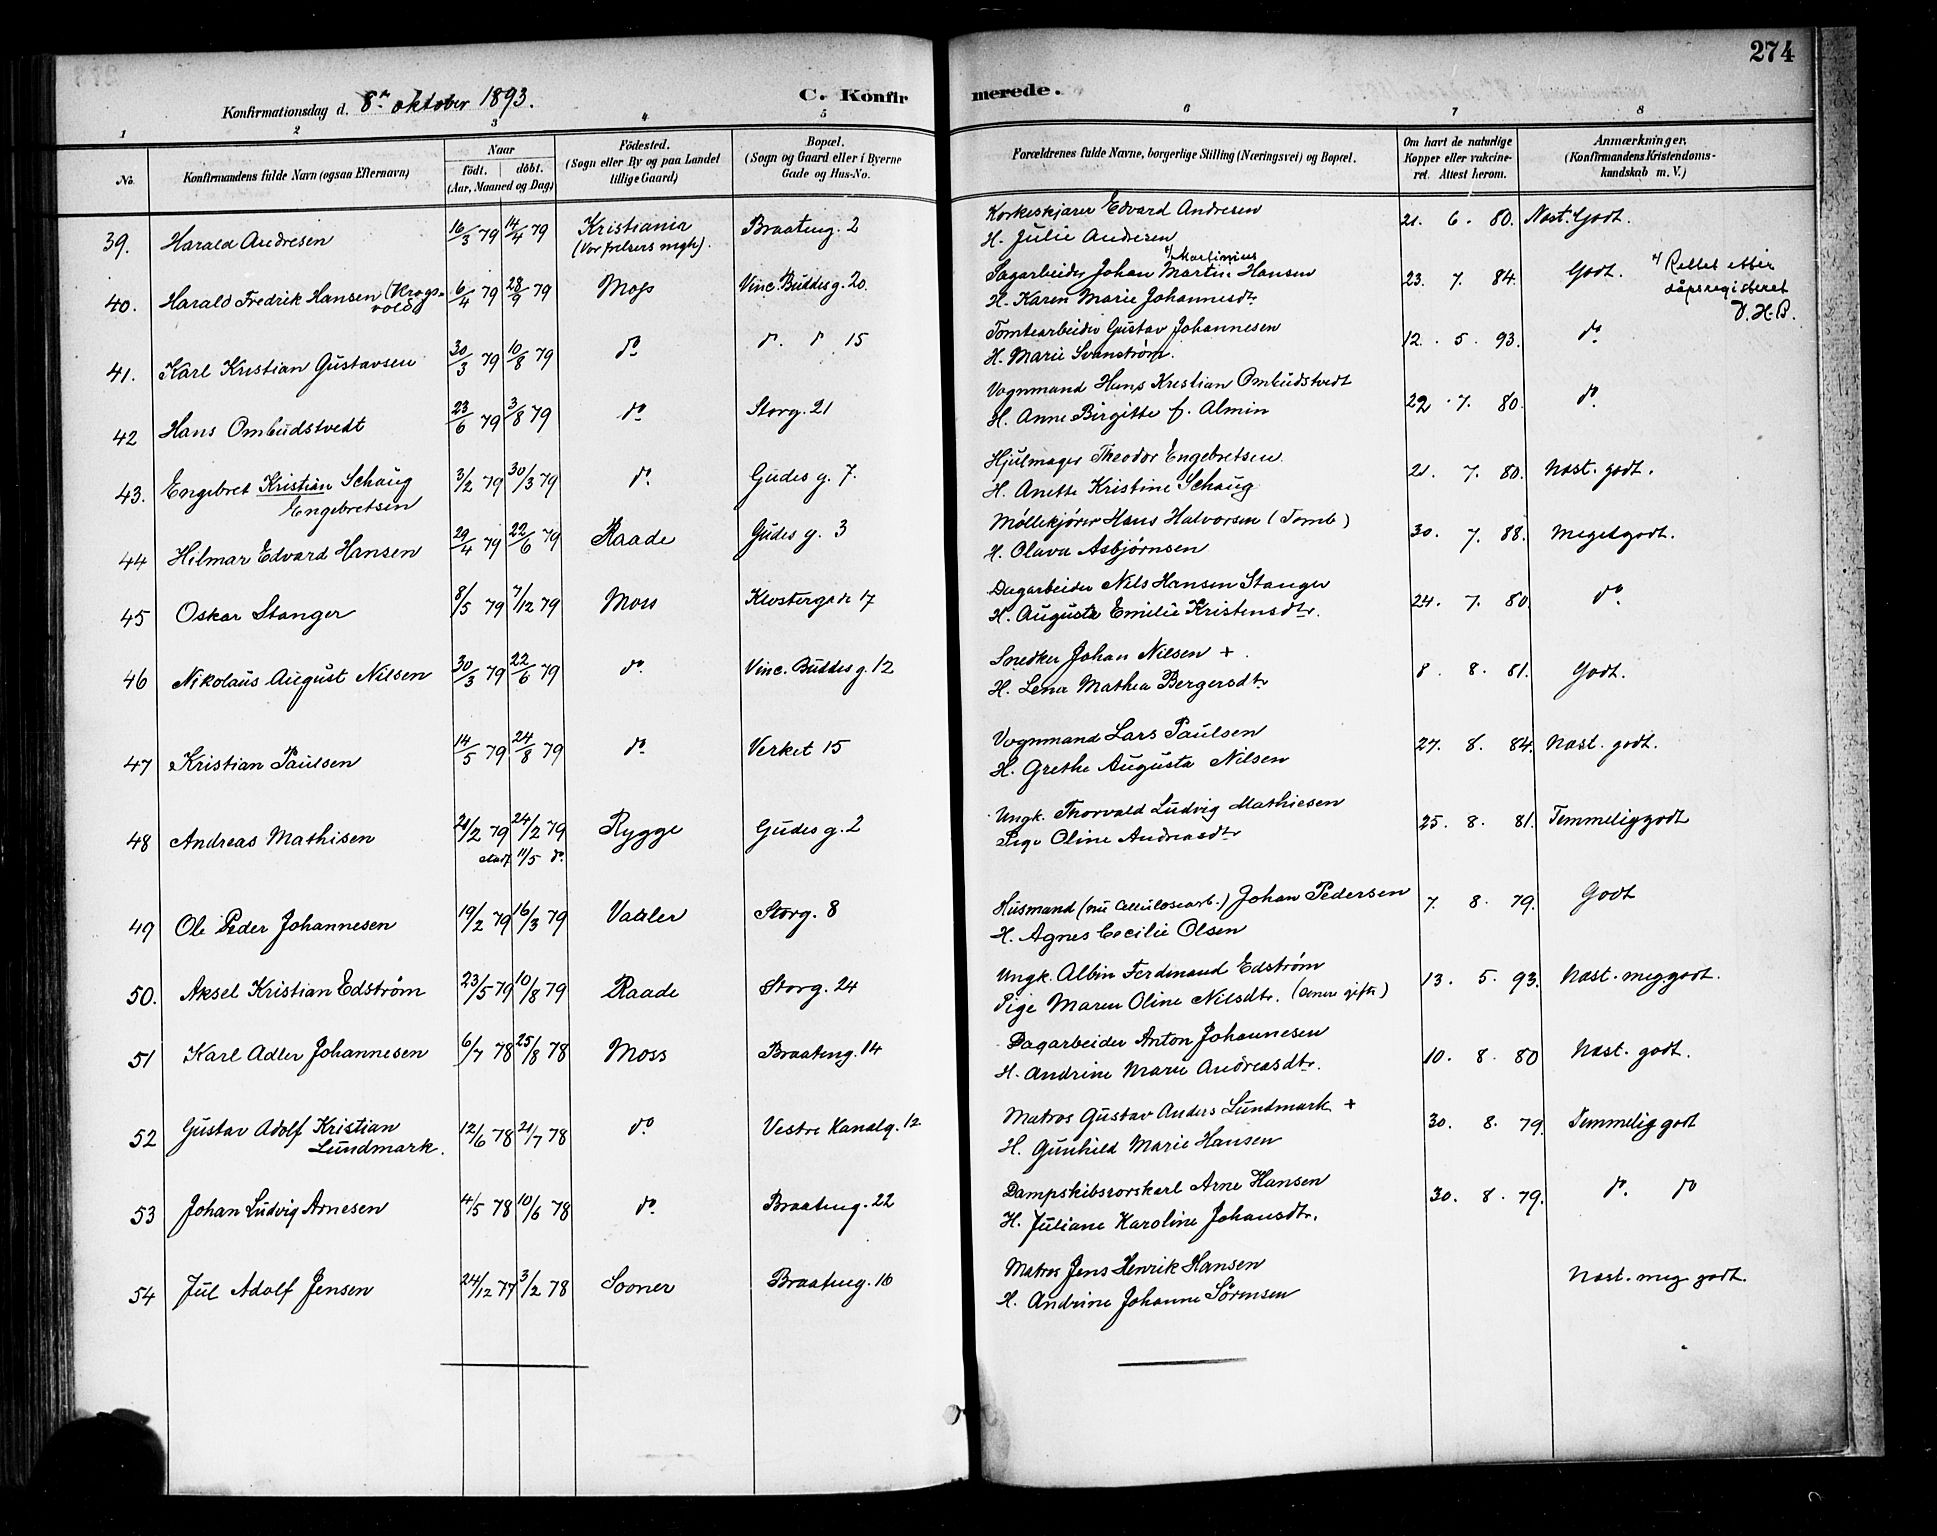 274
Konfirmationsdag d. 8de oktober 1893.
C. Konfirmerede.
1 2 3 4 5 6 7 8
No.
Konfirmandens fulde Navn (ogsaa Efternavn)
Naar
født. døbt.
(Aar, Maaned og Dag)
Fødested.
(Sogn eller By og paa Landet
tillige Gaard)
Bopæl.
(Sogn og Gaard eller i Byerne
Gade og Hus-No.
Forældrenes fulde Navne, borgerlige Stilling (Næringsvei) og Bopæl.
Om havt de naturlige
Kopper eller vakcine-
ret. Attest herom.
Anmærkninger.
(Konfirmandens Kristendoms-
kundskab m. V.)
39. Harald Andresen 16/3 79 14/4 79 Kristiania (Vor frelsers mgh). Braateng. 2
Korkeskjærer Edvard Andresen
H. Julie Andresen
21. 6. 80. Næst. Godt.
40. Harald Fredrik Hansen (Krogsvold) 6/4 79 28/9 79 Moss Vinc. Buddes g. 20.
Sagarbeider Johan Martin Hansen
x) Martinius
H. Karen Marie Johannesdtr
23. 7. 84. Godt.
x) Rettet etter
dåpsregisteret
V. H. B.
41. Karl Kristian Gustavsen 30/3 79 10/8 79 do do do 15
Tomtearbeider Gustav Johannesen
H. Marie Svanstrøm.
12. 5. 93. do
42 Hans Ombudstvedt 23/6 79 3/8 79 do Storg. 21
Vognmand Hans Kristian Ombudstvedt
H. Anne Birgitte f. Almin
22. 7. 80. do
43. Engebret Kristian Schaug Engebretsen 3/2 79 30/3 79 do Gudes g. 7.
Hjulmager Theodor Engebretsen
H. Anette Kristine Schaug
21. 7. 80. Næst. godt.
44 Hilmar Edvard Hansen 29/4 79 22/6 79 Raade Gudes g. 3
Møllekjører Hans Halvorsen (Tomb)
H. Olava Asbjørnsen
30. 7. 88. Megetgodt.
45 Oskar Stanger 8/5 79 7/12 79 Moss Klostergade 17
Dagarbeider Nils Hansen Stanger
H. Augusta Emilie Kristensdtr.
24. 7. 80. do
46 Nikolaus August Nilsen 30/3 79 22/6 79 do Vinc. Buddes g. 12
Snedker Johan Nilsen +
H. Lena Mathea Bergersdtr
8. 8. 81. Godt.
47 Kristian Paulsen 14/5 79 24/8 79 do Verket 15
Vognmand Lars Paulsen
H. Grethe Augusta Nilsen
27. 8. 84. Næst. godt.
48 Andreas Mathisen 21/2 79 24/2 79 Rygge Gudes g. 2
stadf. 11/5 do
Ungk. Thorvald Ludvig Mathiesen
Pige Oline Andreasdtr
25. 8. 81. Temmelig godt
49 Ole Peder Johannesen 19/2 79 16/3 79 Vaaler Storg. 8
Husmand (nu Cellulosearb.) Johan Pedersen
H. Agnes Cecilie Olsen
7. 8. 79. Godt
50. Aksel Kristian Edstrøm 23/5 79 10/8 79 Raade Storg. 24
Ungk. Albin Ferdinand Edstrøm
Pige Maren Oline Nilsdtr. (senere gifte)
13. 5. 93. Næst. meg.godt.
51 Karl Adler Johannesen 6/7 78 25/8 78 Moss Braateng. 14
Dagarbeider Anton Johannesen
H. Andrine Marie Andreasdtr.
10. 8. 80 Næst. godt.
52 Gustav Adolf Kristian Lundmark. 12/6 78 21/7 78 do Vestre Kanalg. 12
Matros Gustav Anders Lundmark +
H. Gunhild Marie Hansen
30. 8. 79. Temmelig godt
53 Johan Ludvig Arnesen 4/5 78 10/6 78 do Braateng. 22
Dampskibsrorskarl Arne Hansen
H. Juliane Karoline Johansdtr.
30. 8. 79. do do
54 Jul Adolf Jensen 24/12 77 3/2 78 Sooner Braateng. 16
Matros Jens Henrik Hansen
H. Andrine Johanne Sørensen
Næst. meg godt.